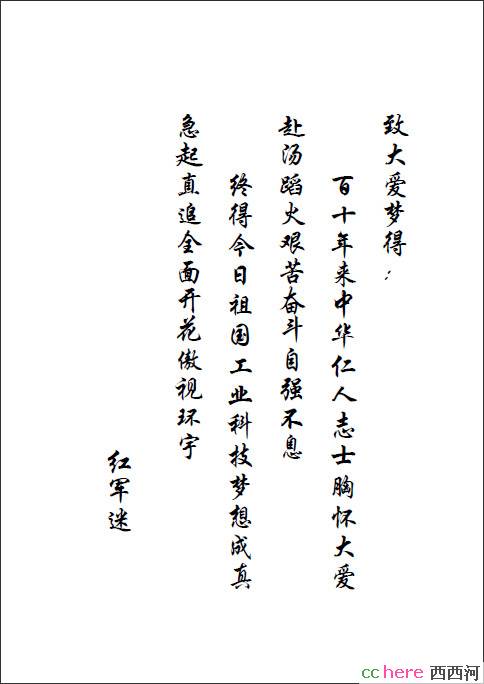 致大爱梦得：
百十年来中华仁人志士胸怀大爱
赴汤蹈火艰苦奋斗自强不息
终得今日祖国工业科技梦想成真
急起直追全面开花傲视环宇
红军迷
cchere 西西河